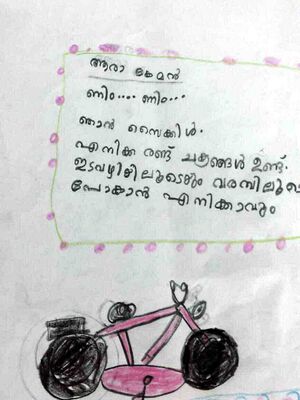 ആരാ കേമൻ
ണിം.... ണിം...
ഞാൻ സൈക്കിൾ.
എനിക്ക രണ്ട് ചക്രങ്ങൾ ഉണ്ട്.
ഇടവഴിയിലൂടെയും വരമ്പിലൂടെ
പോകാൻ എനിക്കാവും